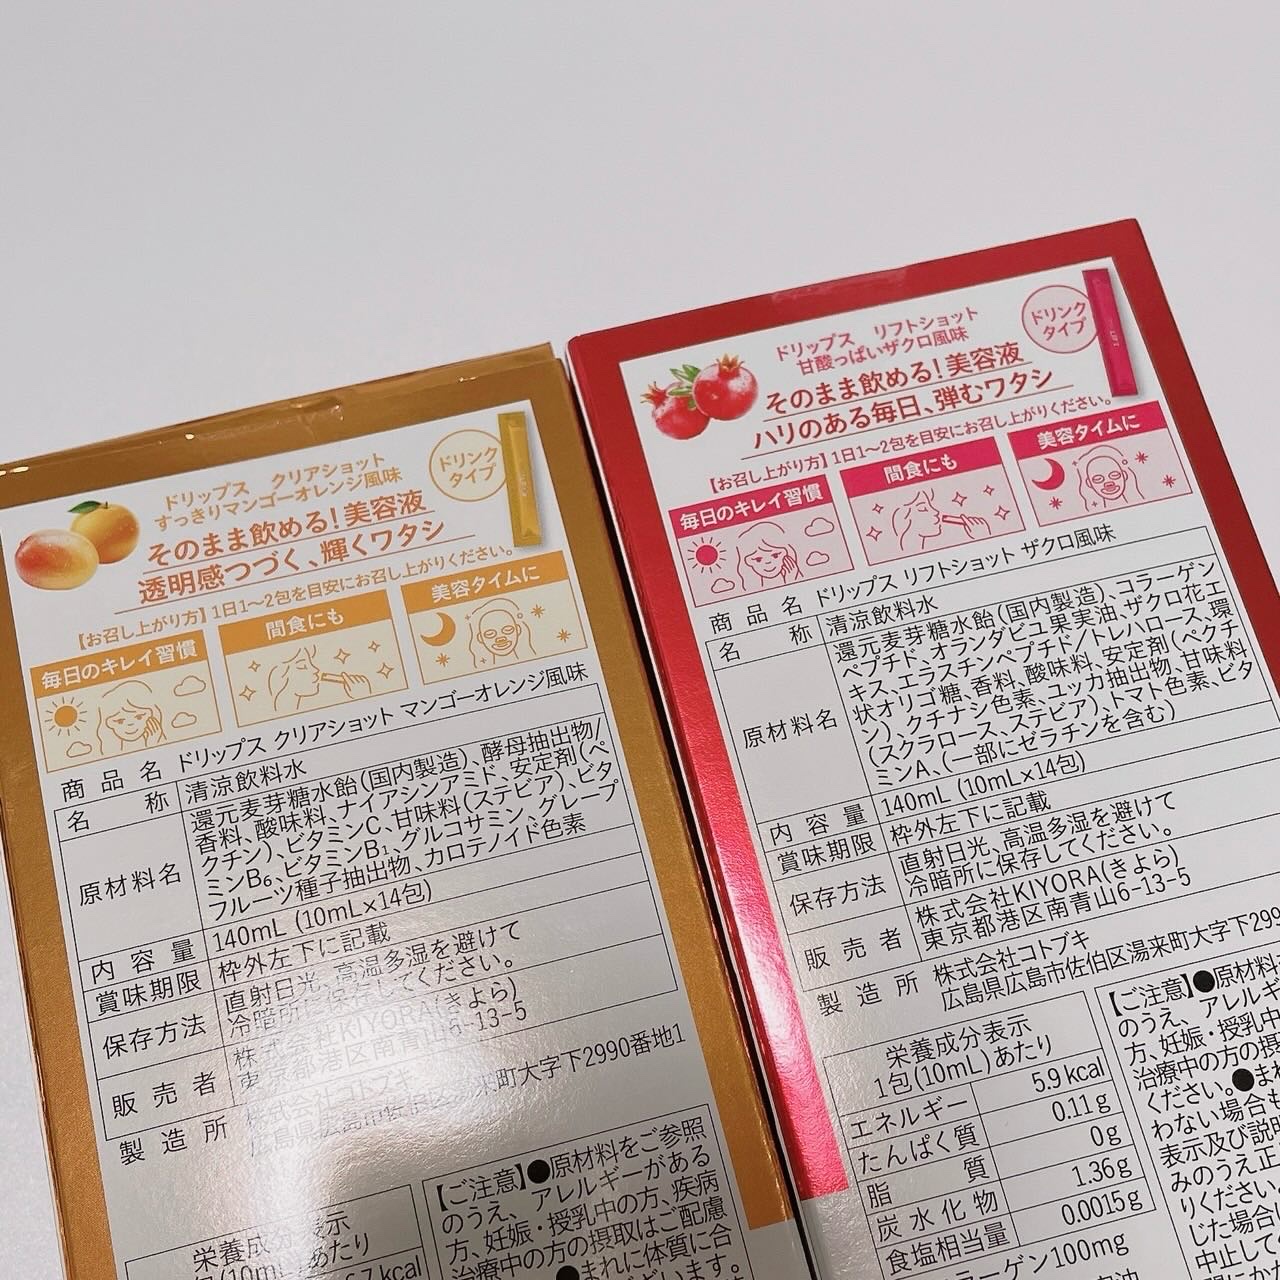 ドリップス クリアショット
すっきりマンゴーオレンジ風味
そのまま飲める!美容液
透明感つづく、輝くワタシ
ドリンク
タイプ
【お召し上がり方】1日1〜2包を目安にお召し上がりください。
毎日のキレイ習慣
間食にも
美容タイムに
商品名 ドリップス クリアショット マンゴーオレンジ風味
名称 清涼飲料水
原材料名 還元麦芽糖水飴(国内製造)、酵母抽出物/
香料、酸味料、ナイアシンアミド、安定剤(ペ
クチン)、ビタミンC、甘味料(ステビア)、ビタ
ミンB6、ビタミンB1、グルコサミン、グレープ
フルーツ種子抽出物、カロテノイド色素
内容量 140mL(10mL×14包)
賞味期限 枠外左下に記載
保存方法 直射日光、高温多湿を避けて
冷暗所に保存してください。
販売者 株式会社KIYORA(きよら)
東京都港区南青山6-13-5
製造所 株式会社コトブキ
広島県広島市佐伯区湯来町大字下2990番地1
栄養成分表示
包(10mL)あたり
7kcal
【ご注意】●原材料をご参照
のうえ、アレルギーがある
方、妊娠・授乳中の方、疾病
治療中の方の摂取はご配慮
●まれに体質に合
ドリップス リフトショット
甘酸っぱいザクロ風味
そのまま飲める!美容液
ハリのある毎日、弾むワタシ
ドリンク
タイプ
LIFT
【お召し上がり方】1日1〜2包を目安にお召し上がりください。
毎日のキレイ習慣
間食にも
美容タイムに
商品名 ドリップス リフトショット ザクロ風味
名称 清涼飲料水
原材料名 還元麦芽糖水飴(国内製造)、コラーゲン
ペプチド、オランダビユ果実油、ザクロ花エ
キス、エラスチンペプチド/トレハロース、環
状オリゴ糖、香料、酸味料、安定剤(ペクチ
ン)、クチナシ色素、ユッカ抽出物、甘味料
(スクラロース、ステビア)、トマト色素、ビタ
ミンA、(一部にゼラチンを含む)
内容量 140mL(10mL×14包)
賞味期限 枠外左下に記載
保存方法 直射日光、高温多湿を避けて
冷暗所に保存してください。
販売者 株式会社KIYORA(きよら)
東京都港区南青山6-13-5
製造所 株式会社コトブキ
広島県広島市佐伯区湯来町大字下299
栄養成分表示
1包(10mL)あたり
エネルギー 5.9kcal
たんぱく質 0.11g
脂質 0g
炭水化物 1.36g
食塩相当量 0.0015g
ラーゲン100mg
【ご注意】●原材料
のうえ、アレルギ
方、妊娠・授乳中
治療中の方の摂
ください。●まれ
わない場合も
表示及び説明
みのうえ正
りください
じた場合
中止して